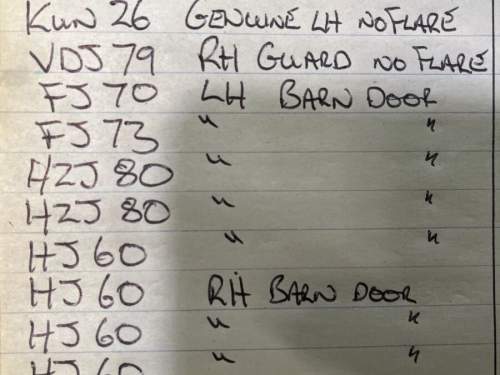 KUN 26 GENUINE LH NO FLARE
VDJ 79 RH GUARD NO FLARE
FJ 70 LH BARN DOOR
FJ 73 " "
HZJ 80 " "
HZJ 80 " "
HJ 60 " "
HJ 60 RH BARN DOOR
HJ 60 " "
HJ 60 " "